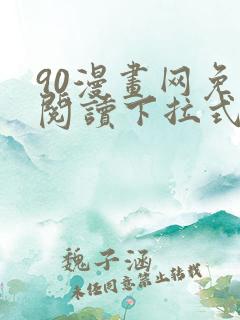 90漫畫网免
閱讀下拉式
魏子涵
未任同意禁止转载